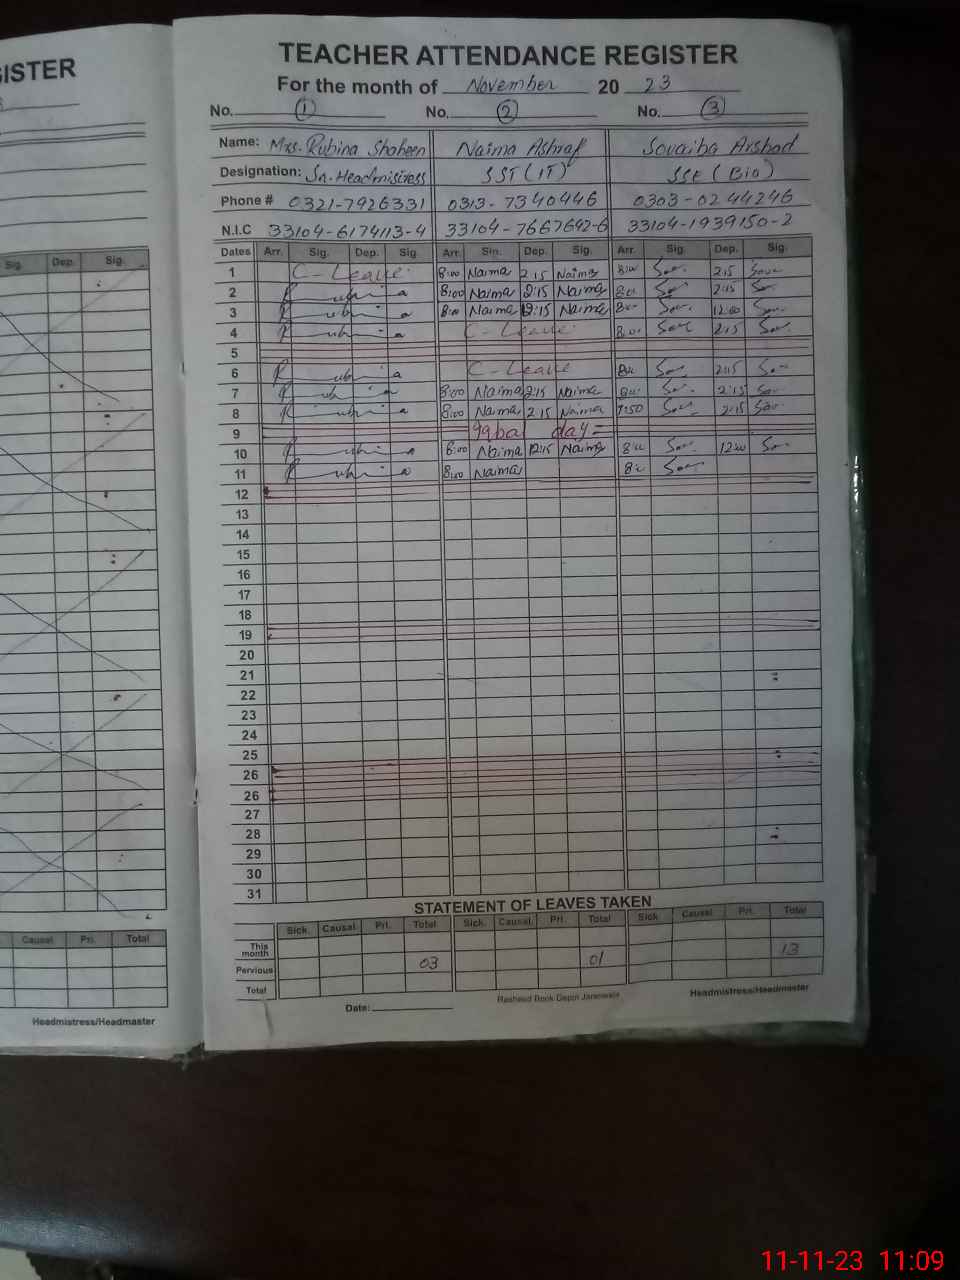 ISTER
TEACHER ATTENDANCE REGISTER
For the month of November 20 23
No. 1 No. 2 No. 3
Name: Mrs. Rubina Shaheen Naima Ashraf Sovaiba Arshad
Designation: Sn. Headmistress SST (IT) SSE (Bio)
Phone # 0321-7926331 0313-7340446 0303-0244246
N.I.C 33104-6174113-4 33104-7667642-6 33104-1939150-2
Dates Arr. Sig. Dep. Sig Arr. Sin. Dep. Sig. Arr. Sig. Dep. Sig.
Sig. Dep. Sig.
1 C-Leave 8:00 Naima 2:15 Naima 2:15
2 Rubina 8:00 Naima 2:15 Naima 2:15
3 Rubina 8:00 Naima 12:15 Naima 12:00
4 Rubina C-Leave 2:15
5
6 Rubina C-Leave 2:15
7 Rubina 8:00 Naima 2:15 Naima 2:15
8 Rubina 8:00 Naima 2:15 Naima 7:50 2:15
9 Iqbal day
10 Rubina 8:00 Naima 12:15 Naima
11 Rubina 8:00 Naima
12
13
14
15
16
17
18
19
20
21
22
23
24
25
26
26
27
28
29
30
31
STATEMENT OF LEAVES TAKEN
Sick. Causal. Pri. Total Sick. Causal. Pri. Total Sick Causal Pri. Total
Causal Pri. Total
This month
Pervious 03 01 13
Total
Date: Rasheed Book Depot Jaranwala Headmistress/Headmaster
Headmistress/Headmaster
11-11-23 11:09